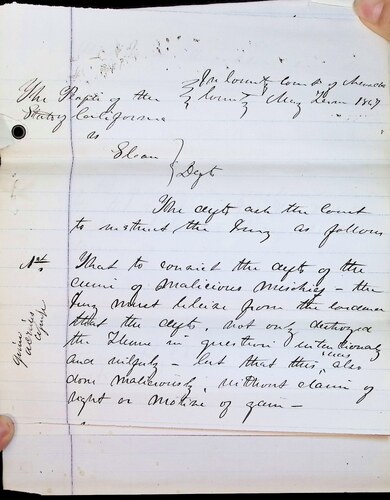 In County Court of
County May Term 1867
The People of the
State of California
vs
Sloan
Defts
The defts ask the Court
to instruct the Jury as follows
No 1st
That to convict the defts of the
crime of malicious mischief - the
Jury must believe from the evidence
that the defts, not only destroyed
the Flume in question intentionally
and wilfuly - but that this was, also
done maliciously, without claim of
right or motive of gain -
Given